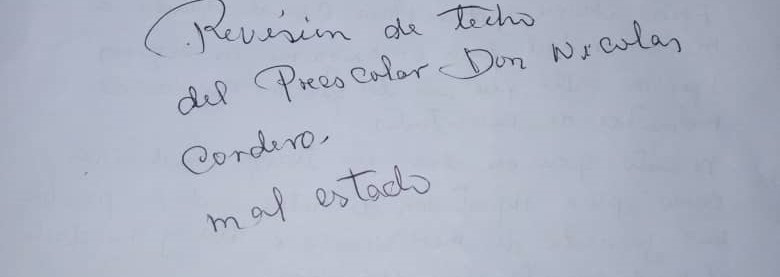 Revisión de techo
del Preescolar Don Nicolas
Cordero.
mal estado